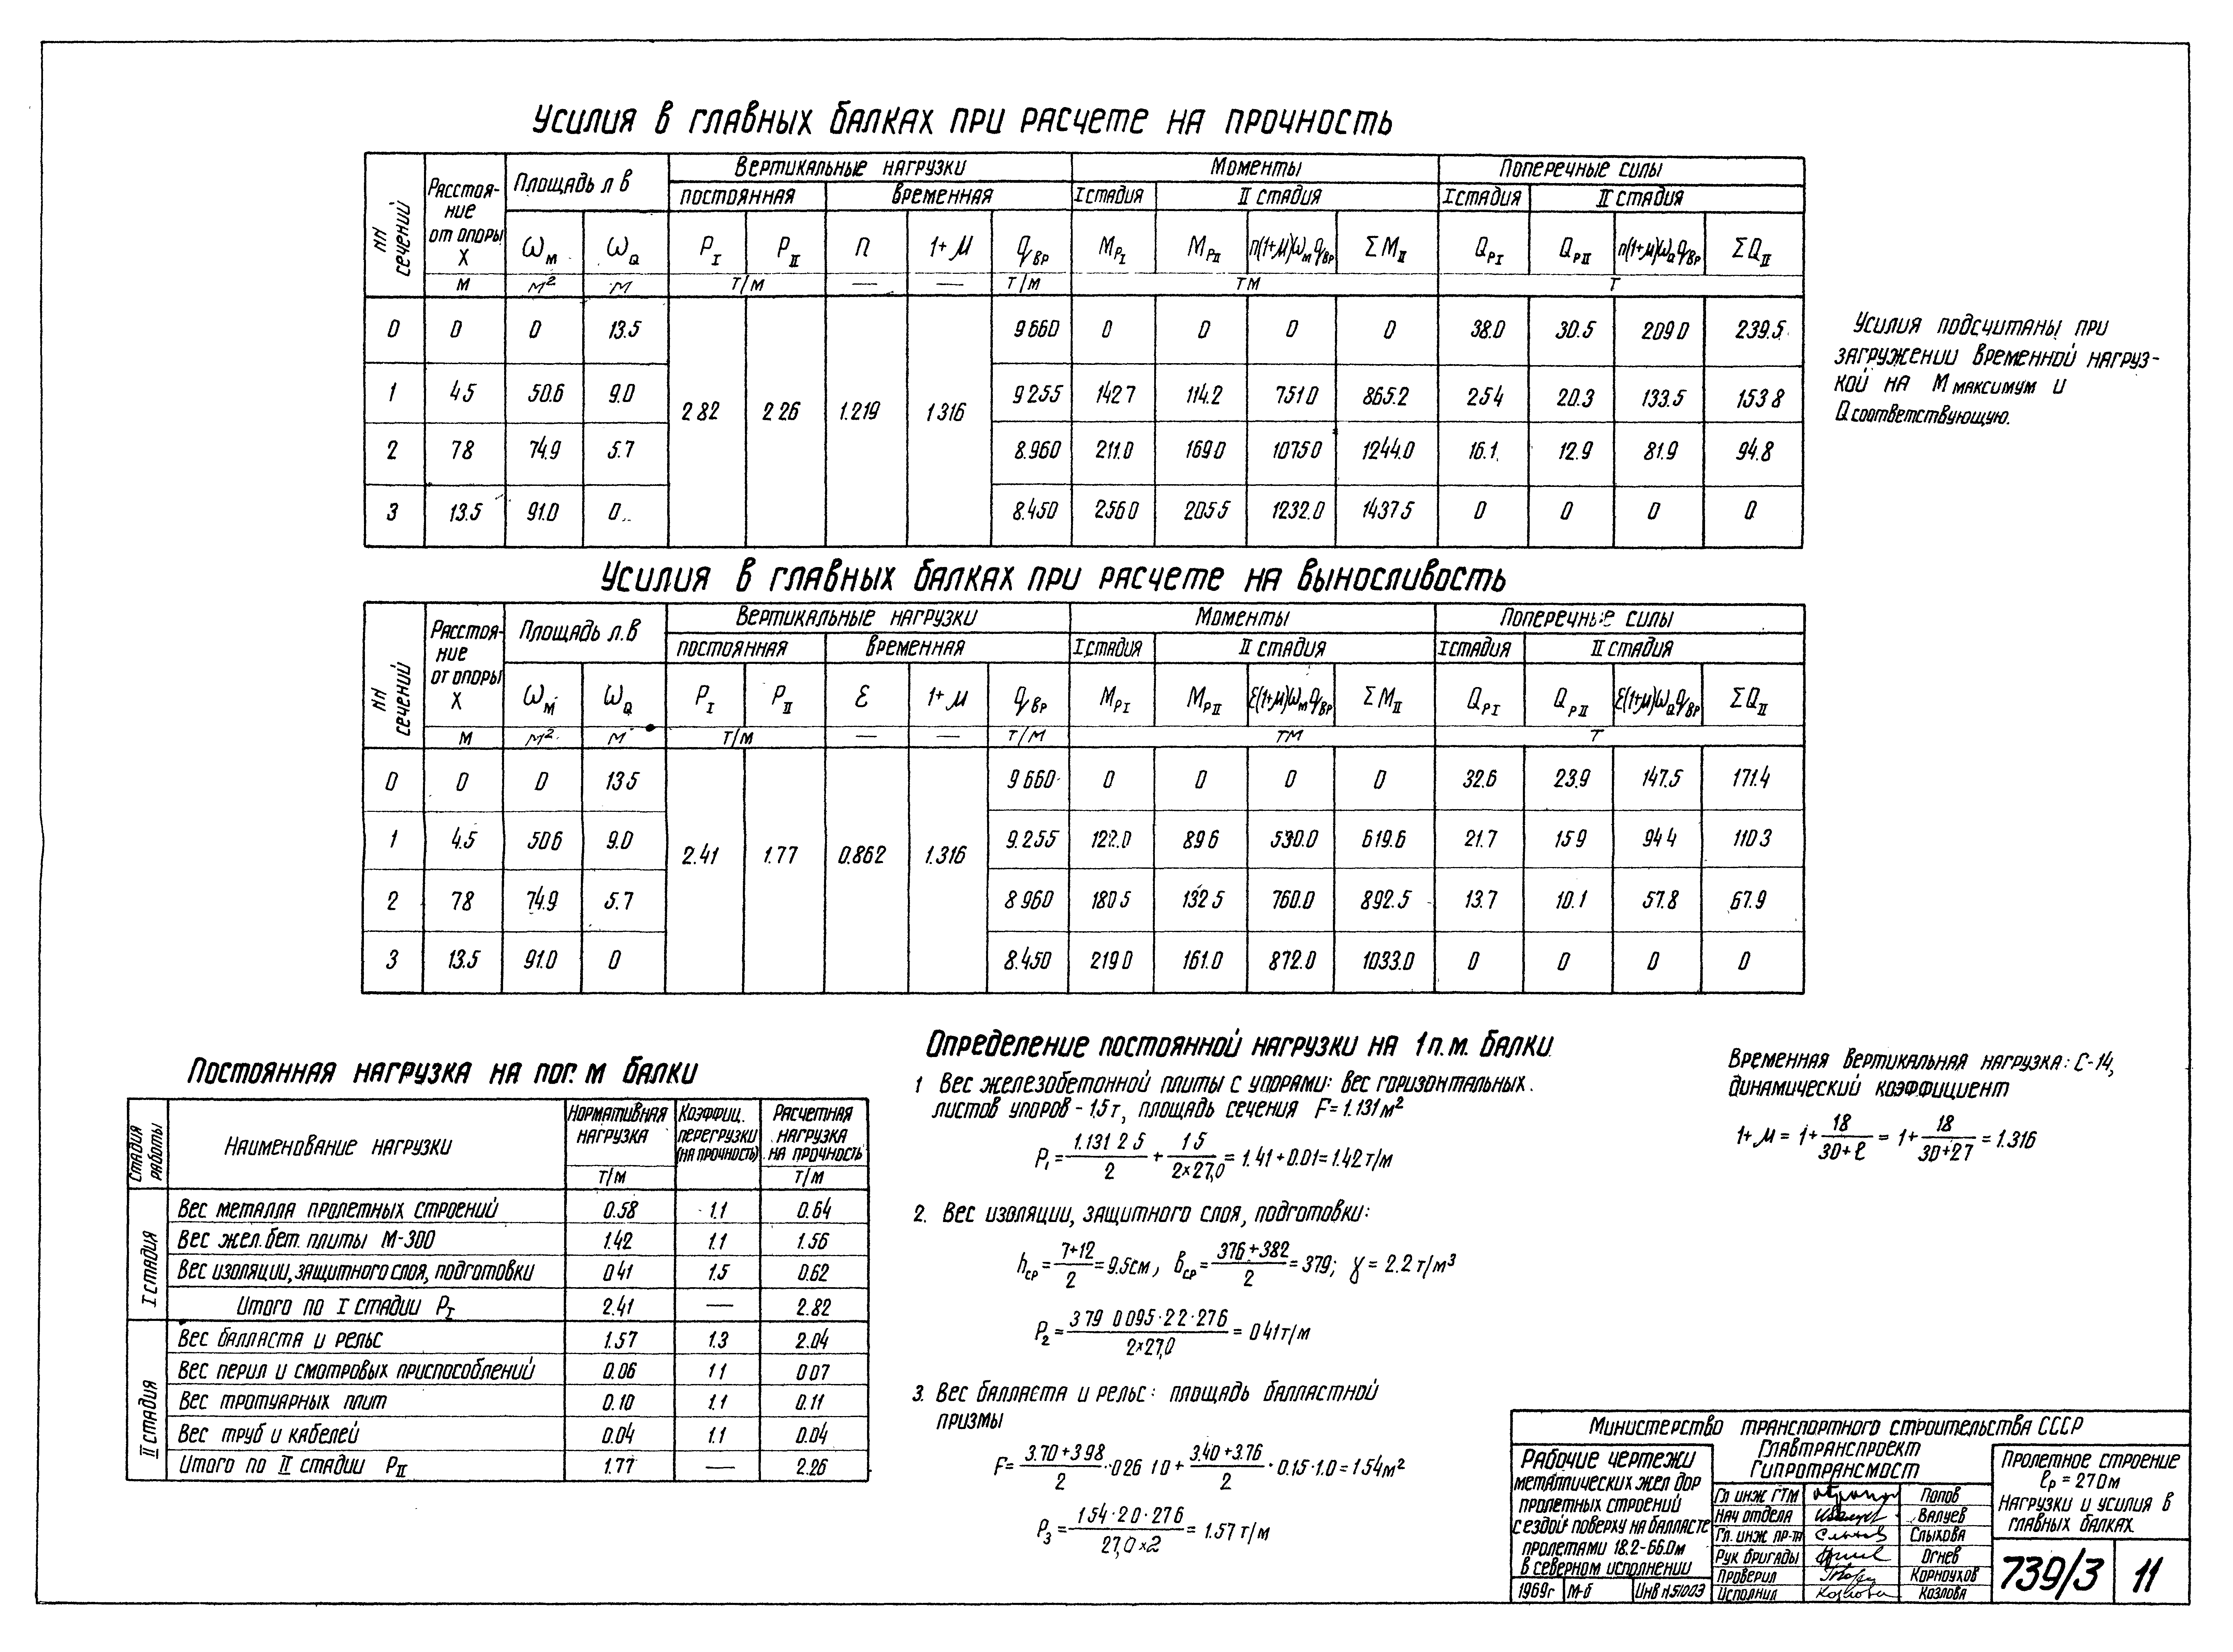 Усилия в главных балках при расчете на прочность
NN сечений | Расстояние от опоры X | Площадь л в | Вертикальные нагрузки | Моменты | Поперечные силы
постоянная | временная | I стадия | II стадия | I стадия | II стадия
ωм | ωQ | PI | PII | n | 1+μ | qвр | MPI | MPII | n(1+μ)ωм qвр | ΣMII | QPI | QPII | n(1+μ)ωQ qвр | ΣQII
м | м² | м | т/м | — | — | т/м | тм | т
0 | 0 | 0 | 13.5 | 9660 | 0 | 0 | 0 | 0 | 38.0 | 30.5 | 2090 | 239.5
1 | 45 | 50.6 | 9.0 | 9255 | 1427 | 114.2 | 7510 | 865.2 | 254 | 20.3 | 133.5 | 1538
282 | 226 | 1.219 | 1316
2 | 78 | 74.9 | 5.7 | 8.960 | 211.0 | 1690 | 10750 | 1244.0 | 16.1 | 12.9 | 81.9 | 94.8
3 | 13.5 | 91.0 | 0 | 8.450 | 2560 | 2055 | 1232.0 | 14375 | 0 | 0 | 0 | 0
Усилия подсчитаны при
загружении временной нагруз-
кой на M максимум и
Q соответствующую.
Усилия в главных балках при расчете на выносливость
NN сечений | Расстояние от опоры X | Площадь л.в | Вертикальные нагрузки | Моменты | Поперечные силы
постоянная | временная | I стадия | II стадия | I стадия | II стадия
ωм | ωQ | PI | PII | ε | 1+μ | qвр | MPI | MPII | ε(1+μ)ωм qвр | ΣMII | QPI | QPII | ε(1+μ)ωQ qвр | ΣQII
м | м² | м | т/м | — | — | т/м | тм | т
0 | 0 | 0 | 135 | 9660 | 0 | 0 | 0 | 0 | 32.6 | 23.9 | 147.5 | 171.4
1 | 4.5 | 506 | 9.0 | 9.255 | 122.0 | 896 | 530.0 | 619.6 | 21.7 | 159 | 944 | 1103
2.41 | 1.77 | 0.862 | 1.316
2 | 78 | 74.9 | 5.7 | 8960 | 1805 | 132 5 | 760.0 | 892.5 | 13.7 | 10.1 | 57.8 | 67.9
3 | 13.5 | 91.0 | 0 | 8.450 | 2190 | 161.0 | 872.0 | 1033.0 | 0 | 0 | 0 | 0
Постоянная нагрузка на пог. м балки
Стадия работы | Наименование нагрузки | Нормативная нагрузка | Коэффиц. перегрузки (на прочность) | Расчетная нагрузка на прочность
т/м | т/м
I стадия
Вес металла пролетных строений | 0.58 | 1.1 | 0.64
Вес жел. бет. плиты М-300 | 1.42 | 1.1 | 1.56
Вес изоляции, защитного слоя, подготовки | 041 | 1.5 | 0.62
Итого по I стадии PI | 2.41 | — | 2.82
II стадия
Вес балласта и рельс | 1.57 | 1.3 | 2.04
Вес перил и смотровых приспособлений | 0.06 | 11 | 007
Вес тротуарных плит | 0.10 | 1.1 | 0.11
Вес труб и кабелей | 0.04 | 1.1 | 0.04
Итого по II стадии PII | 1.77 | — | 2.26
Определение постоянной нагрузки на 1 п.м. балки
1 Вес железобетонной плиты с упорами: вес горизонтальных
листов упоров - 1,5т, площадь сечения F=1.131м²
P₁= 1.131 2 5 / 2 + 1 5 / 2×27,0 = 1.41+0.01=1.42т/м
2. Вес изоляции, защитного слоя, подготовки:
hср= 7+12 / 2 =9.5см, bср= 376+382 / 2 =379; γ=2.2т/м³
P₂= 3 79 0 095·2 2·27 6 / 2×27,0 = 0 41т/м
3. Вес балласта и рельс: площадь балластной
призмы
F= 3.70+3 98 / 2 ·0 26 1 0 + 3.40+3.76 / 2 ·0.15·1.0=1 54м²
P₃= 1 54·2 0·27 6 / 27,0×2 = 1.57 т/м
Временная вертикальная нагрузка: С-14,
динамический коэффициент
1+μ=1+ 18 / 30+ℓ = 1+ 18 / 30+27 =1.316
Министерство транспортного строительства СССР
Главтранспроект
Гипротрансмост
Рабочие чертежи
металлических жел дор
пролетных строений
с ездой поверху на балласте
пролетами 18.2-66.0м
в северном исполнении
1969г | М-б | Инв N51003
Гл инж ГТМ | Попов
Нач отдела | Валуев
Гл. инж пр-та | Слыхова
Рук бригады | Огнев
Проверил | Корноухов
Исполнил | Козлова
Пролетное строение
ℓр = 27 0м
Нагрузки и усилия в
главных балках.
739/3 | 11